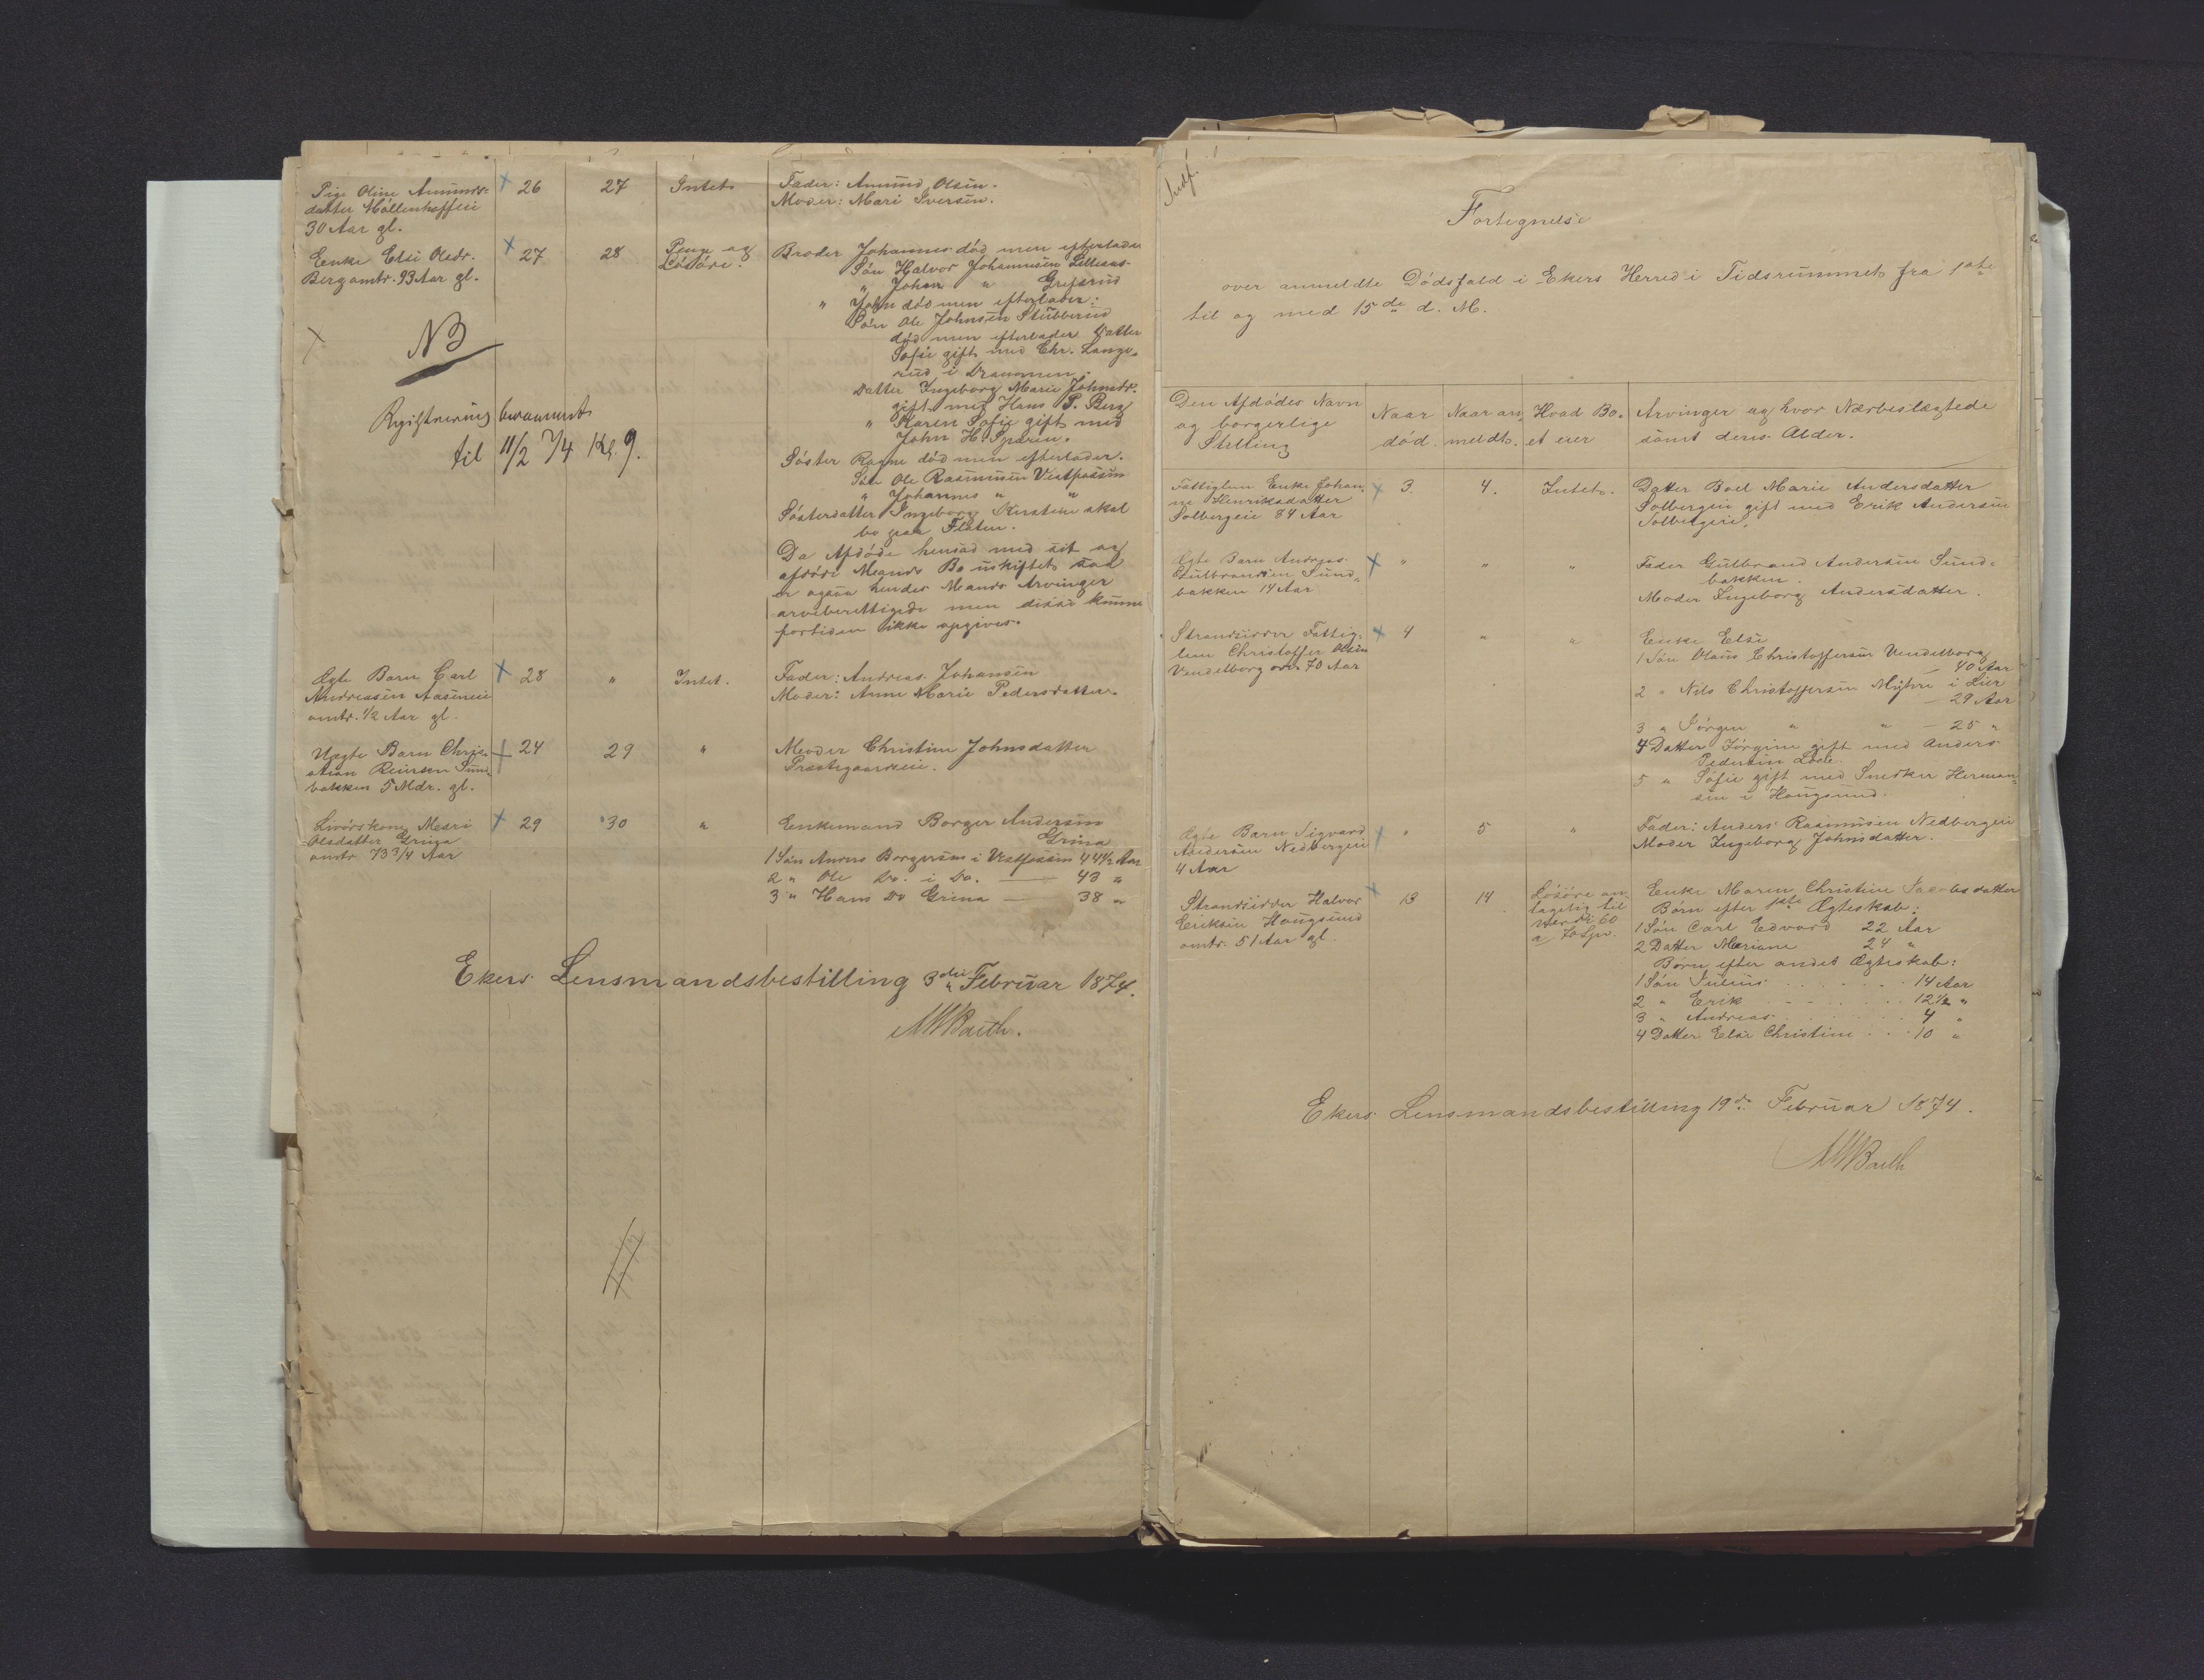 Pige Oline Amunds-
datter Möllenhofseie
30 Aar gl.
26 27 Intet.
Fader: Amund Olsen.
Moder: Mari Iversen.
Enke Else Olsdr.
Berg omtr. 93 Aar gl.
27 28 Penge og
Lösöre.
Broder Johannes död men efterlader
Sön Halvor Johannesen Lilleaas-
" Johan " Grefsrud
" John död men efterlader:
Sön Ole Johnsen Stubberud
död men efterlader Datter
Sofie gift med Chr. Lange-
rud i Drammen.
Datter Ingeborg Marie Johnsdr.
gift med Hans P. Berg
" Karen Sofie gift med
John H. Sparen.
Söster Ragne död men efterlader.
Sön Ole Rasmussen Vestfossen
" Johannes " "
Sösterdatter Ingeborg Kirstine skal
bo paa Flaten.
Da Afdöde hensad med sit og
afdöde Mands Bo uskiftet saa
er ogsaa hendes Mands Arvinger
arveberettigede men disse kunne
fortiden ikke opgives.
NB
Registrering berammet
til 11/2 74 Kl. 9.
Ægte Barn Carl
Andreasen Aaseneie
omtr. 1/2 Aar gl.
28 " Intet.
Fader: Andreas Johansen
Moder: Anne Marie Pedersdatter.
Uægte Barn Chris-
tian Reiersen Sund-
bakken 5 Mdr. gl.
24 29 "
Moder Christine Johnsdatter
Præstegaardseie.
Livörskone Mari
Olsdatter Grina
omtr. 73 3/4 Aar
29 30 "
Enkemand Borger Andersen
Grina
1 Sön Anders Borgersen i Vestfossen 44 1/2 Aar
2 " Ole Do. i Do. — 43 "
3 " Hans Do Grina — 38 "
Ekers Lensmandsbestilling 3die Februar 1874.
MWBarth.
Fortegnelse
over anmeldte Dödsfald i Ekers Herred i Tidsrummet fra 1ste
til og med 15de d. M.
Den Afdödes Navn
og borgerlige
Stilling
Naar
död.
Naar an-
meldt.
Hvad Bo-
et eier
Arvinger og hvor Nærbeslægtede
samt deres Alder.
Fattiglem Enke Johan-
ne Henriksdatter
Solbergeie 84 Aar
3 4. Intet.
Datter Boel Marie Andersdatter
Solbergeie gift med Erik Andersen
Solbergeie.
Ægte Barn Andreas
Gulbrandsen Sund-
bakken 14 Aar
" " "
Fader Gulbrand Andersen Sund-
bakken.
Moder Ingeborg Andersdatter.
Strandsidder Fattig-
lem Christoffer Olsen
Vendelborg over 70 Aar
4 " "
Enke Else
1 Sön Olaus Christoffersen Vendelborg
40 Aar
2 " Nils Christoffersen Myhre i Lier
— 29 Aar
3 " Jörgen " " — 25 "
4 Datter Jörgine gift med Anders
Pedersen Loele.
5 " Sofie gift med Snedker Herman-
sen i Hougsund.
Ægte Barn Sigvard
Andersen Nedbergeie
4 Aar
" 5 "
Fader: Anders Rasmussen Nedbergeie
Moder Ingeborg Johnsdatter.
Strandsidder Halvor
Eriksen Hougsund
omtr. 51 Aar gl.
13 14 Lösöre an-
tagelig til
Værdi 60
a 70 Spd.
Enke Maren Christine Jacobsdatter
Börn efter 1ste Ægteskab:
1 Sön Carl Edvard 22 Aar
2 Datter Mariane 24 "
Börn efter andet Ægteskab:
1 Sön Julius . . . . 14 Aar
2 " Erik . . . . 12 1/2 "
3 " Andreas . . . . 4 "
4 Datter Else Christine . . . 10 "
Ekers Lensmandsbestilling 19de Februar 1874.
MWBarth